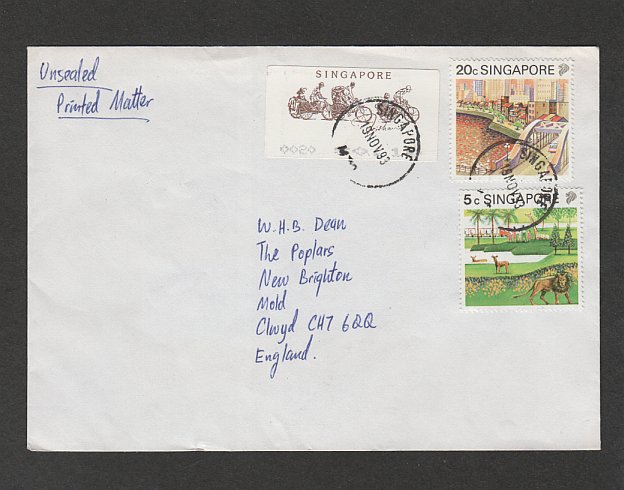 Unsealed
Printed Matter
SINGAPORE
0020
SINGAPORE
19NOV93
20c SINGAPORE
SINGAPORE
5c SINGAPORE
W.H.B. Dean
The Poplars
New Brighton
Mold
Clwyd CH7 6QQ
England.